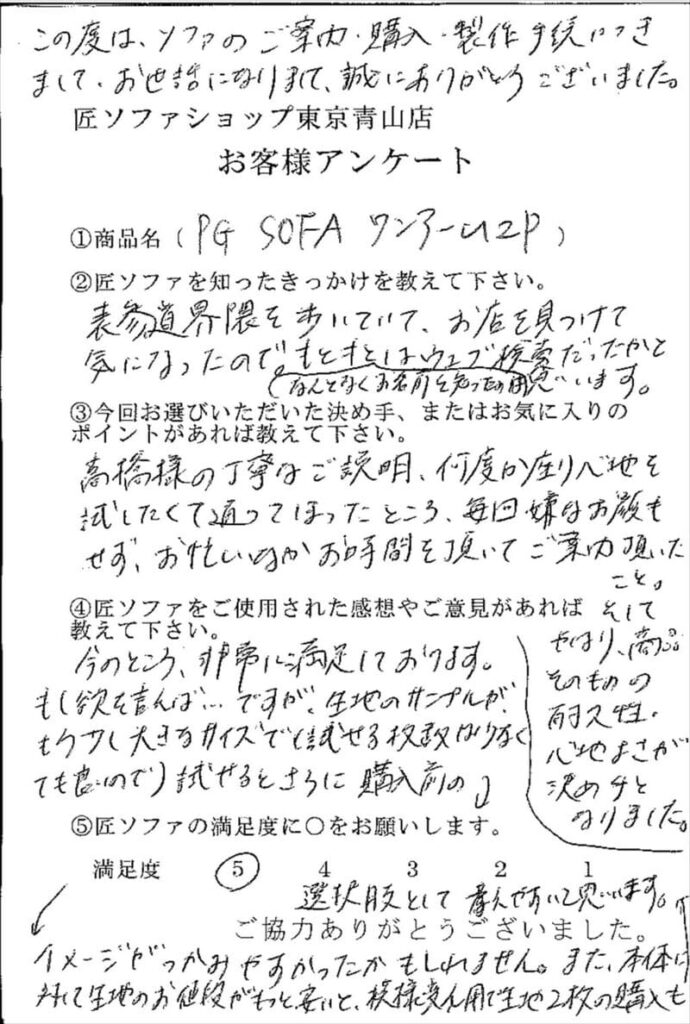 この度は、ソファのご案内・購入・製作手続につき
まして、お世話になりまして、誠にありがとうございました。
匠ソファショップ東京青山店
お客様アンケート
①商品名（PG SOFA ワンアーム2P）
②匠ソファを知ったきっかけを教えて下さい。
表参道界隈を歩いていて、お店を見つけて
気になったので。もともとはウェブ検索だったかと
（なんとなくお名前を知ったの 思います。
③今回お選びいただいた決め手、またはお気に入りの
ポイントがあれば教えて下さい。
高橋様の丁寧なご説明、何度か座り心地を
試したくて通ってしまったところ、毎回嫌なお顔も
せず、お忙しいなかお時間を頂いてご案内頂いた
こと。
そして
やはり、商品
そのものの
耐久性・
心地よさが
決め手と
なりました。
④匠ソファをご使用された感想やご意見があれば
教えて下さい。
今のところ、非常に満足しております。
もし欲を言えば…ですが、生地のサンプルが、
もう少し大きなサイズで（試せる枚数は少なく
ても良いので）試せるとさらに購入前の
イメージがつかみやすかったかもしれません。また、本体に
対して生地のお値段がもっと安いと、模様変え用で生地2枚の購入も
選択肢として 選んやすいと思います。
⑤匠ソファの満足度に○をお願いします。
満足度 5 4 3 2 1
ご協力ありがとうございました。